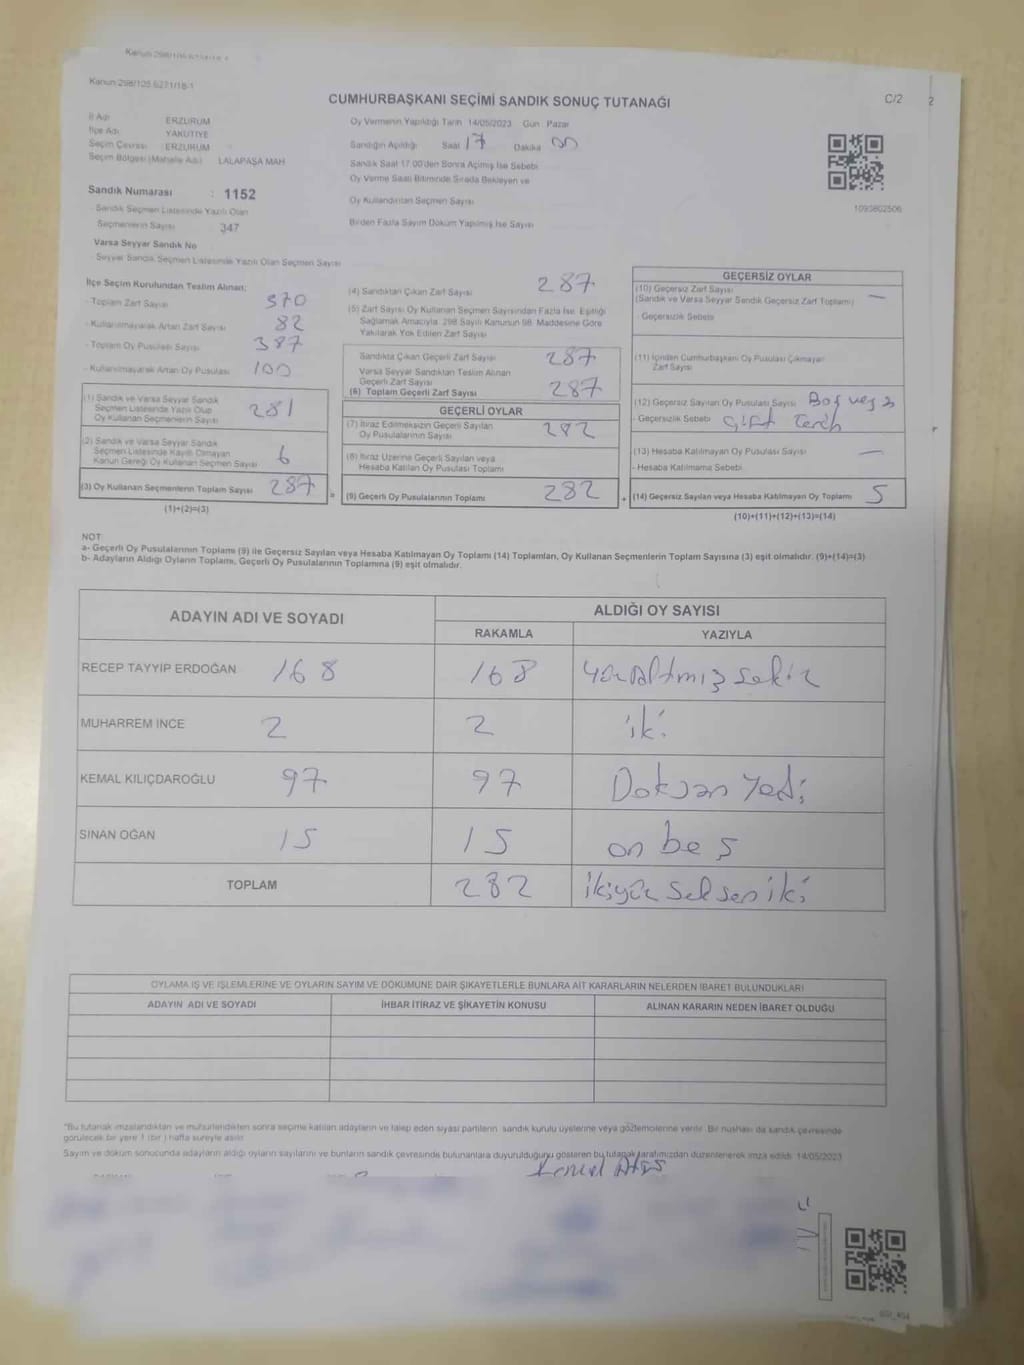 Kanun 298/105 6271/18-1
CUMHURBAŞKANI SEÇİMİ SANDIK SONUÇ TUTANAĞI
C/2
2
İl Adı ERZURUM
İlçe Adı YAKUTİYE
Seçim Çevresi ERZURUM
Seçim Bölgesi (Mahalle Adı) LALAPAŞA MAH
Sandık Numarası : 1152
- Sandık Seçmen Listesinde Yazılı Olan
Seçmenlerin Sayısı 347
Varsa Seyyar Sandık No
- Seyyar Sandık Seçmen Listesinde Yazılı Olan Seçmen Sayısı
Oy Vermenin Yapıldığı Tarih 14/05/2023 Gün : Pazar
Sandığın Açıldığı Saat 17 Dakika 00
Sandık Saat 17.00'den Sonra Açılmış İse Sebebi
Oy Verme Saati Bitiminde Sırada Bekleyen ve
Oy Kullandırılan Seçmen Sayısı
Birden Fazla Sayım Döküm Yapılmış İse Sayısı
1093802506
İlçe Seçim Kurulundan Teslim Alınan;
- Toplam Zarf Sayısı 370
- Kullanılmayarak Artan Zarf Sayısı 82
- Toplam Oy Pusulası Sayısı 387
- Kullanılmayarak Artan Oy Pusulası 100
(1) Sandık ve Varsa Seyyar Sandık
Seçmen Listesinde Yazılı Olup
Oy Kullanan Seçmenlerin Sayısı 281
(2) Sandık ve Varsa Seyyar Sandık
Seçmen Listesinde Kayıtlı Olmayan
Kanun Gereği Oy Kullanan Seçmen Sayısı 6
(3) Oy Kullanan Seçmenlerin Toplam Sayısı 287
(1)+(2)=(3)
(4) Sandıktan Çıkan Zarf Sayısı 287
(5) Zarf Sayısı Oy Kullanan Seçmen Sayısından Fazla İse, Eşitliği
Sağlamak Amacıyla, 298 Sayılı Kanunun 98. Maddesine Göre
Yakılarak Yok Edilen Zarf Sayısı
Sandıkta Çıkan Geçerli Zarf Sayısı 287
Varsa Seyyar Sandıktan Teslim Alınan
Geçerli Zarf Sayısı
(6) Toplam Geçerli Zarf Sayısı 287
GEÇERLİ OYLAR
(7) İtiraz Edilmeksizin Geçerli Sayılan
Oy Pusulalarının Sayısı 282
(8) İtiraz Üzerine Geçerli Sayılan veya
Hesaba Katılan Oy Pusulası Toplamı
(9) Geçerli Oy Pusulalarının Toplamı 282
GEÇERSİZ OYLAR
(10) Geçersiz Zarf Sayısı
(Sandık ve Varsa Seyyar Sandık Geçersiz Zarf Toplamı) —
- Geçersizlik Sebebi
(11) İçinden Cumhurbaşkanı Oy Pusulası Çıkmayan
Zarf Sayısı
(12) Geçersiz Sayılan Oy Pusulası Sayısı Boş veya
- Geçersizlik Sebebi Çift Tercih
(13) Hesaba Katılmayan Oy Pusulası Sayısı —
- Hesaba Katılmama Sebebi
+ (14) Geçersiz Sayılan veya Hesaba Katılmayan Oy Toplamı 5
(10)+(11)+(12)+(13)=(14)
NOT:
a- Geçerli Oy Pusulalarının Toplamı (9) ile Geçersiz Sayılan veya Hesaba Katılmayan Oy Toplamı (14) Toplamları, Oy Kullanan Seçmenlerin Toplam Sayısına (3) eşit olmalıdır. (9)+(14)=(3)
b- Adayların Aldığı Oyların Toplamı, Geçerli Oy Pusulalarının Toplamına (9) eşit olmalıdır.
ADAYIN ADI VE SOYADI ALDIĞI OY SAYISI
RAKAMLA YAZIYLA
RECEP TAYYİP ERDOĞAN 168 168 Yüzaltmış sekiz
MUHARREM İNCE 2 2 iki
KEMAL KILIÇDAROĞLU 97 97 Doksan Yedi
SİNAN OĞAN 15 15 on beş
TOPLAM 282 ikiyüz seksen iki
OYLAMA İŞ VE İŞLEMLERİNE VE OYLARIN SAYIM VE DÖKÜMÜNE DAİR ŞİKAYETLERLE BUNLARA AİT KARARLARIN NELERDEN İBARET BULUNDUKLARI
ADAYIN ADI VE SOYADI İHBAR İTİRAZ VE ŞİKAYETİN KONUSU ALINAN KARARIN NEDEN İBARET OLDUĞU
"Bu tutanak imzalandıktan ve mühürlendikten sonra seçime katılan adayların ve talep eden siyasi partilerin sandık kurulu üyelerine veya gözlemcilerine verilir. Bir nüshası da sandık çevresinde
görülecek bir yere 1 (bir) hafta süreyle asılır.
Sayım ve döküm sonucunda adayların aldığı oyların sayılarını ve bunların sandık çevresinde bulunanlara duyurulduğunu gösteren bu tutanak tarafımızdan düzenlenerek imza edildi. 14/05/2023